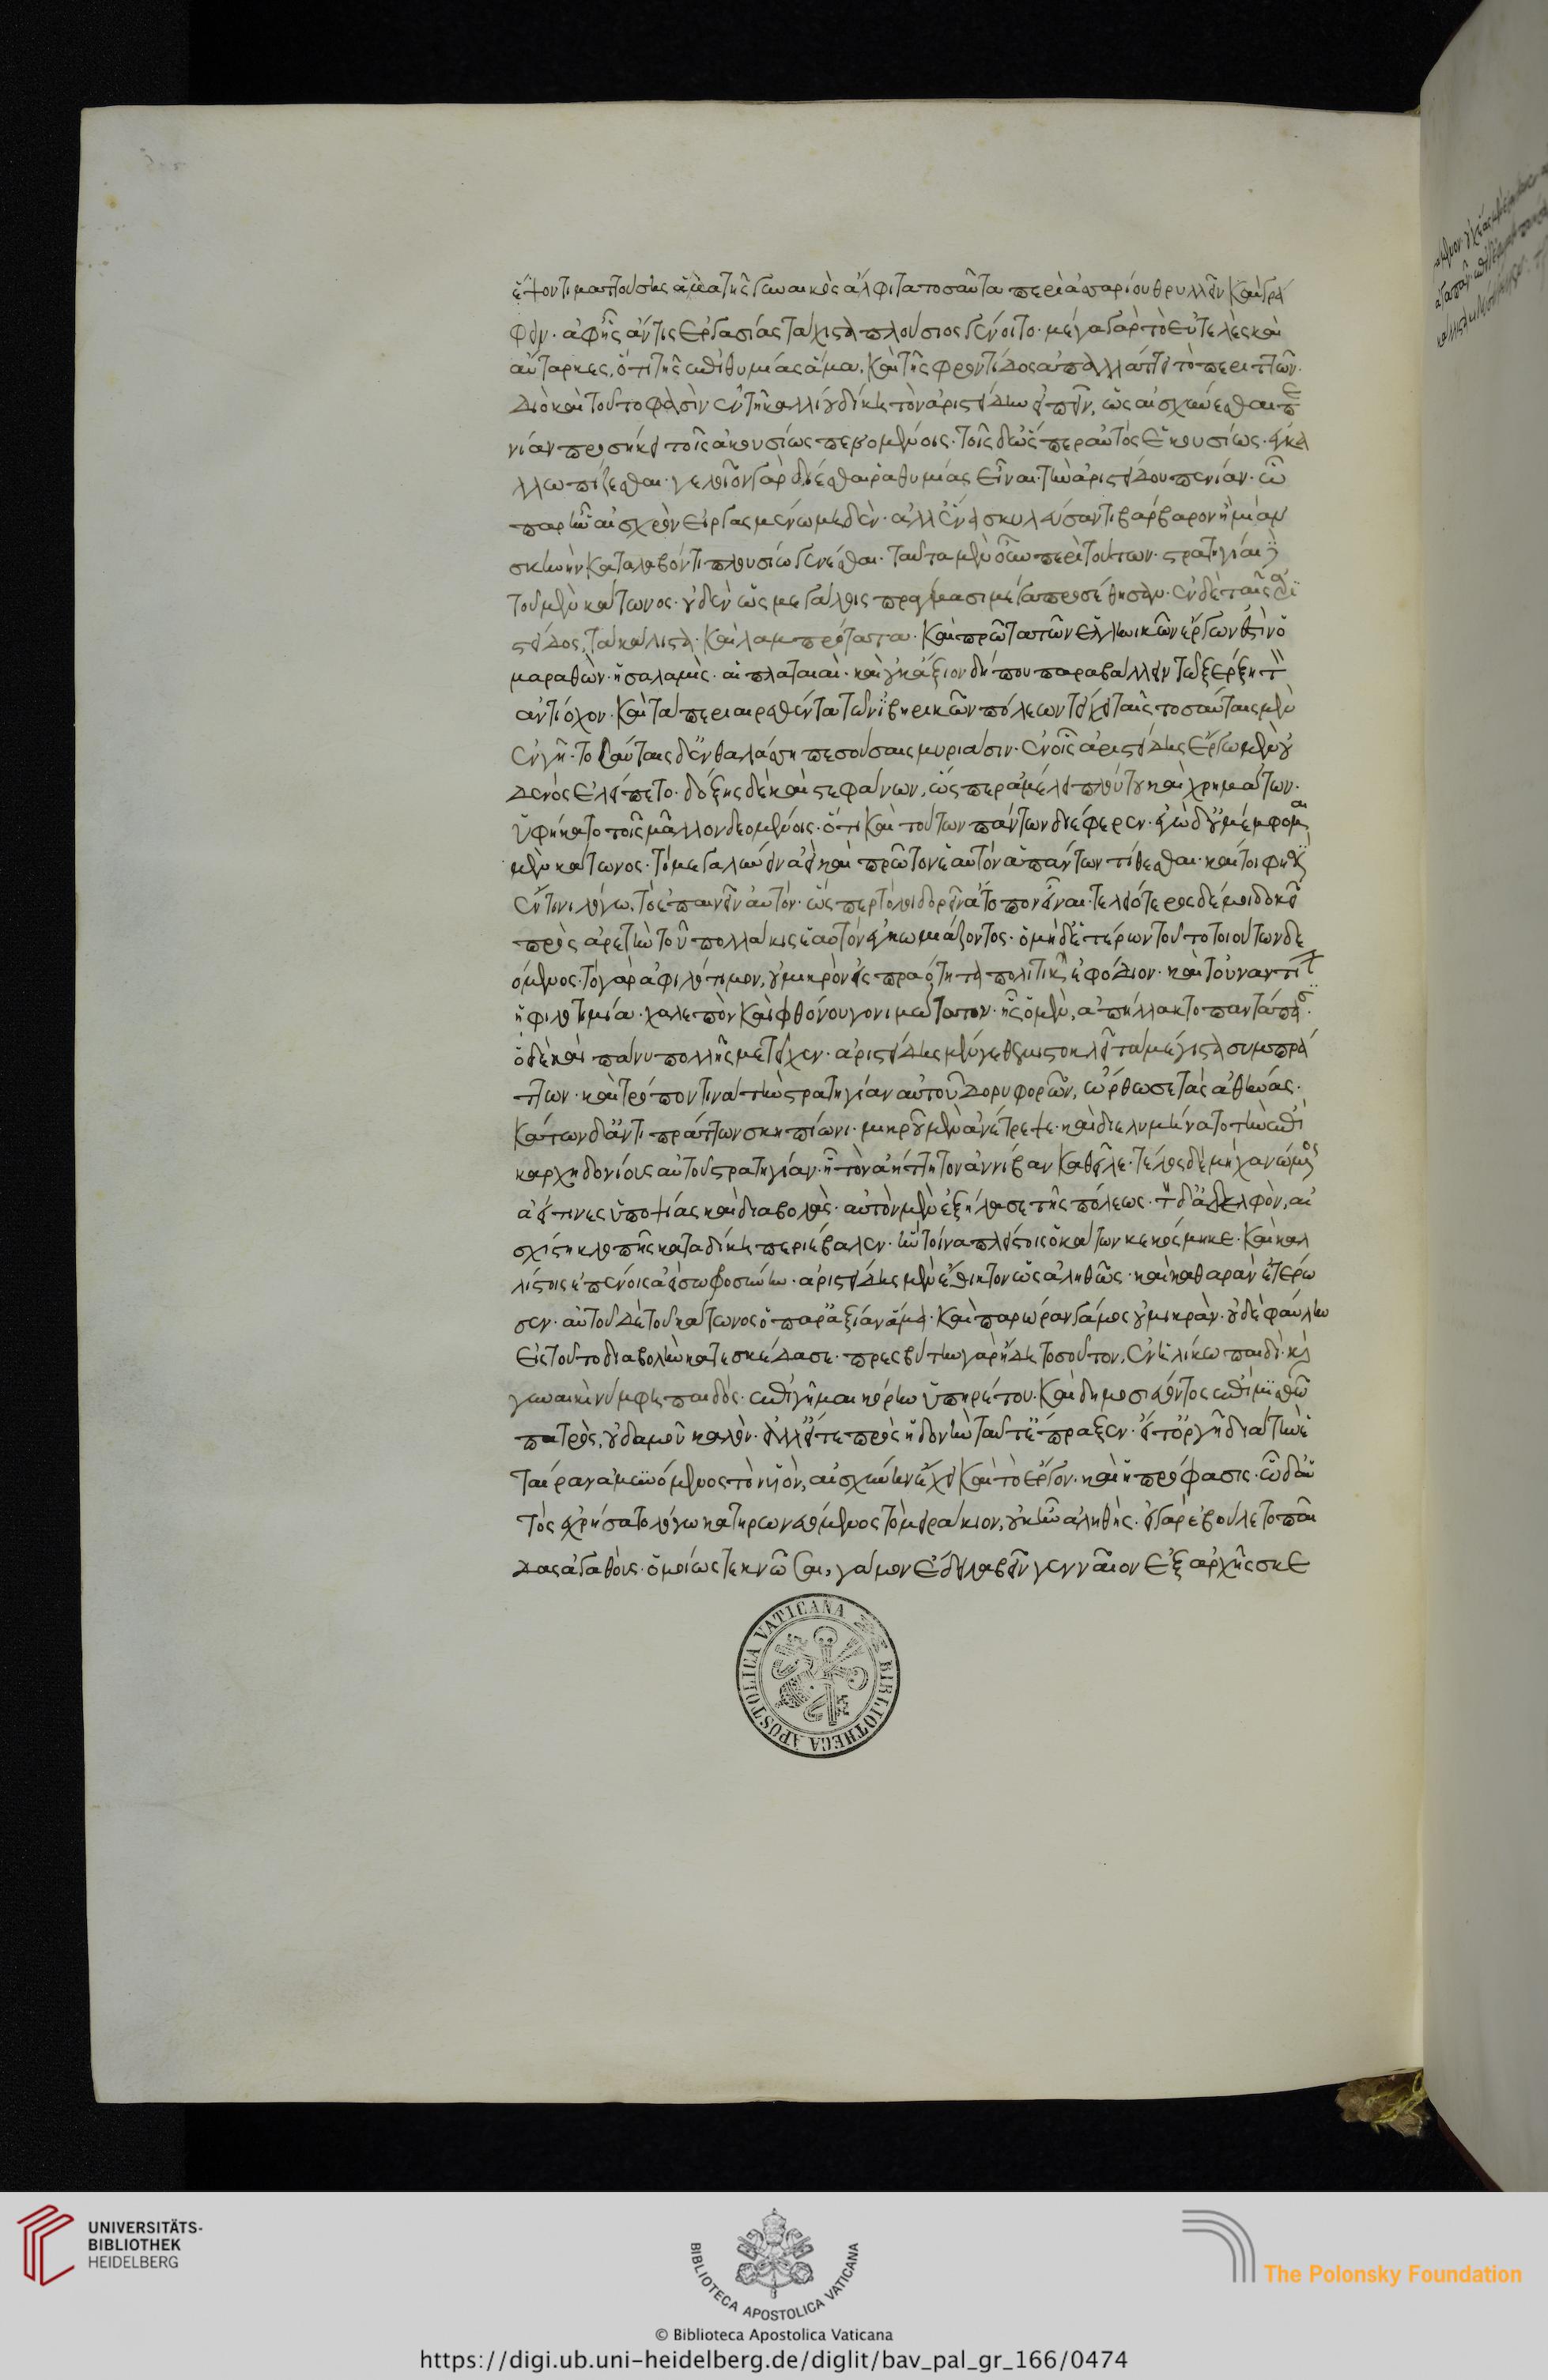 ἕψοντι ματτούσης ἅμα τῆς γυναικὸς ἄλφιτα τοσαῦτα περὶ ἀσσαρίου θρυλλεῖν καὶ γρά
φειν· ἀφ' ἧς ἄν τις ἐργασίας τάχιστα πλούσιος γένοιτο· μέγα γὰρ τὸ εὐτελὲς καὶ
αὔταρκες, ὅτι τῆς ἐπιθυμίας ἅμα, καὶ τῆς φροντίδος ἀπαλλάττει τὸ περιττῶν·
διὸ καὶ τοῦτο φασὶν ἐν τῇ καλλίου δίκῃ τὸν ἀριστείδην εἰπεῖν, ὡς αἰσχύνεσθαι πε
νίαν προσήκει τοῖς ἀκουσίως πενομένοις· τοῖς δ' ὥσπερ αὐτὸς ἑκουσίως· ἐγκα
λλωπίζεσθαι· γελοῖον γὰρ οἴεσθαι ῥαθυμίας εἶναι τὴν ἀριστείδου πενίαν· ᾧ
παρῆν αἰσχρὸν εἰργασμένῳ μηδὲν· ἀλλ' ἕνα σκυλεύσαντι βάρβαρον ἢ μίαν
σκηνὴν καταλαβόντι πλουσίῳ γενέσθαι· ταῦτα μὲν οὖν περὶ τούτων· στρατηγίαι δὲ
τοῦ μὲν κάτωνος· οὐδὲν ὡς μεγάλοις πράγμασι μέγα προσέθηκαν· ἐν δὲ ταῖς ἀρι
στείδος, τὰ κάλιστα· καὶ λαμπρότατα· καὶ πρῶτα τῶν ἑλληνικῶν ἔργων ἐστὶν ὁ
μαραθὼν· ἡ σαλαμὶς· αἱ πλαταιαὶ· καὶ οὐκ ἄξιον δήπου παραβάλλειν τῷ ξέρξῃ τὸν
ἀντίοχον· καὶ τὰ περιαιρεθέντα τῶν ἰβηρικῶν πόλεων τείχει ταῖς τοσαύταις μὲν
ἐν γῇ· τοσαύταις δ' ἐν θαλάσσῃ πεσούσαις μυριάσιν· ἐν οἷς ἀριστείδης ἔργῳ μὲν οὐ
δενὸς ἐλείπετο· δόξης δὲ καὶ στεφάνων, ὥσπερ ἀμέλει πλούτου καὶ χρημάτων·
ὑφήκατο τοῖς μᾶλλον δεομένοις· ὅτι καὶ τούτων πάντων διέφερεν· ἐγὼ δ' οὐ μέμφομαι
μὲν κάτωνος· τὸ μεγαλύνειν ἀεὶ καὶ πρῶτον ἑαυτὸν ἁπάντων τίθεσθαι· καίτοι φησὶν
ἔν τινι λόγῳ, τὸ ἐπαινεῖν αὑτὸν· ὥσπερ τὸ λοιδορεῖν ἄτοπον εἶναι· τελειότερος δέ μοι δοκεῖ
πρὸς ἀρετὴν τοῦ πολλάκις ἑαυτὸν ἐγκωμιάζοντος· ὁ μηδ' ἑτέρων τοῦτο ποιούντων δε
όμενος· τὸ γὰρ ἀφιλότιμον, οὐ μικρὸν εἰς πραότητα πολιτικὴν ἐφόδιον· καὶ τοὐναντίον
ἡ φιλοτιμία· χαλεπὸν καὶ φθόνου γονιμώτατον· ἧς ὁ μὲν, ἀπήλλακτο παντάπασιν·
ὁ δὲ καὶ πάνυ πολλῆς μετεῖχεν· ἀριστείδης μέν γε θεμιστοκλεῖ τὰ μέγιστα συμπρά
ττων· καὶ τρόπον τινὰ τὴν στρατηγίαν αὐτοῦ δορυφορῶν, ὤρθωσε τὰς ἀθήνας·
κάτων δ' ἀντιπράττων σκηπίωνι· μικροῦ μὲν ἀνέτρεψε· καὶ διελυμήνατο τὴν ἐπὶ
καρχηδονίους αὐτοῦ στρατηγίαν· ᾗ τὸν ἀήττητον ἀννίβαν καθεῖλε· τέλος δὲ μηχανώμενος
ἀεί τινες ὑποψίας καὶ διαβολὰς· αὐτὸν μὲν ἐξήλασε τῆς πόλεως· τὸν δ' ἀδελφὸν, αἰ
σχίστῃ κλοπῆς καταδίκῃ περιέβαλεν· ἣν τοίνα πλείστοις ὁ κάτων κεκόσμηκε· καὶ καλ
λίστοις ἐπαίνοις ἀεὶ σωφροσύνην· ἀριστείδης μὲν ἄθικτον ὡς ἀληθῶς· καὶ καθαρὰν ἐτήρη
σεν· αὐτοῦ δὲ τοῦ κάτωνος ὁ παρ' ἀξίαν ἅμα· καὶ παρ' ὥραν γάμος οὐ μικρὰν· οὐδὲ φαύλην
εἰς τοῦτο διαβολὴν κατεσκέδασε· πρεσβύτην γὰρ ἤδη τοσοῦτον, ἐνηλίκῳ παιδὶ· καὶ
γυναικὶ νύμφῃ παιδὸς· ἐπιγῆμαι κόρην ὑπηρέτου· καὶ δημοσιεύοντος ἐπὶ μισθῷ
πατρὸς, οὐδαμοῦ καλὸν· ἀλλ' εἴτε πρὸς ἡδονὴν ταῦτ' ἔπραξεν· εἴτ' ὀργῇ διὰ τὴν ἑ
ταίραν ἀμυνόμενος τὸν υἱὸν, αἰσχύνην ἔχει καὶ τὸ ἔργον· καὶ ἡ πρόφασις· ᾧ δ' αὐ
τὸς ἐχρήσατο λόγῳ κατηρωνευόμενος τὸ μειράκιον, οὐκ ἦν ἀληθὴς· εἰ γὰρ ἐβούλετο παῖ
δας ἀγαθοὺς· ὁμοίως τεκνῶσαι, γάμον ἔδει λαβεῖν γενναῖον ἐξ ἀρχῆς σκε
BIBLIOTHECA APOSTOLICA VATICANA
UNIVERSITÄTS-
BIBLIOTHEK
HEIDELBERG
BIBLIOTECA APOSTOLICA VATICANA
The Polonsky Foundation
© Biblioteca Apostolica Vaticana
https://digi.ub.uni-heidelberg.de/diglit/bav_pal_gr_166/0474